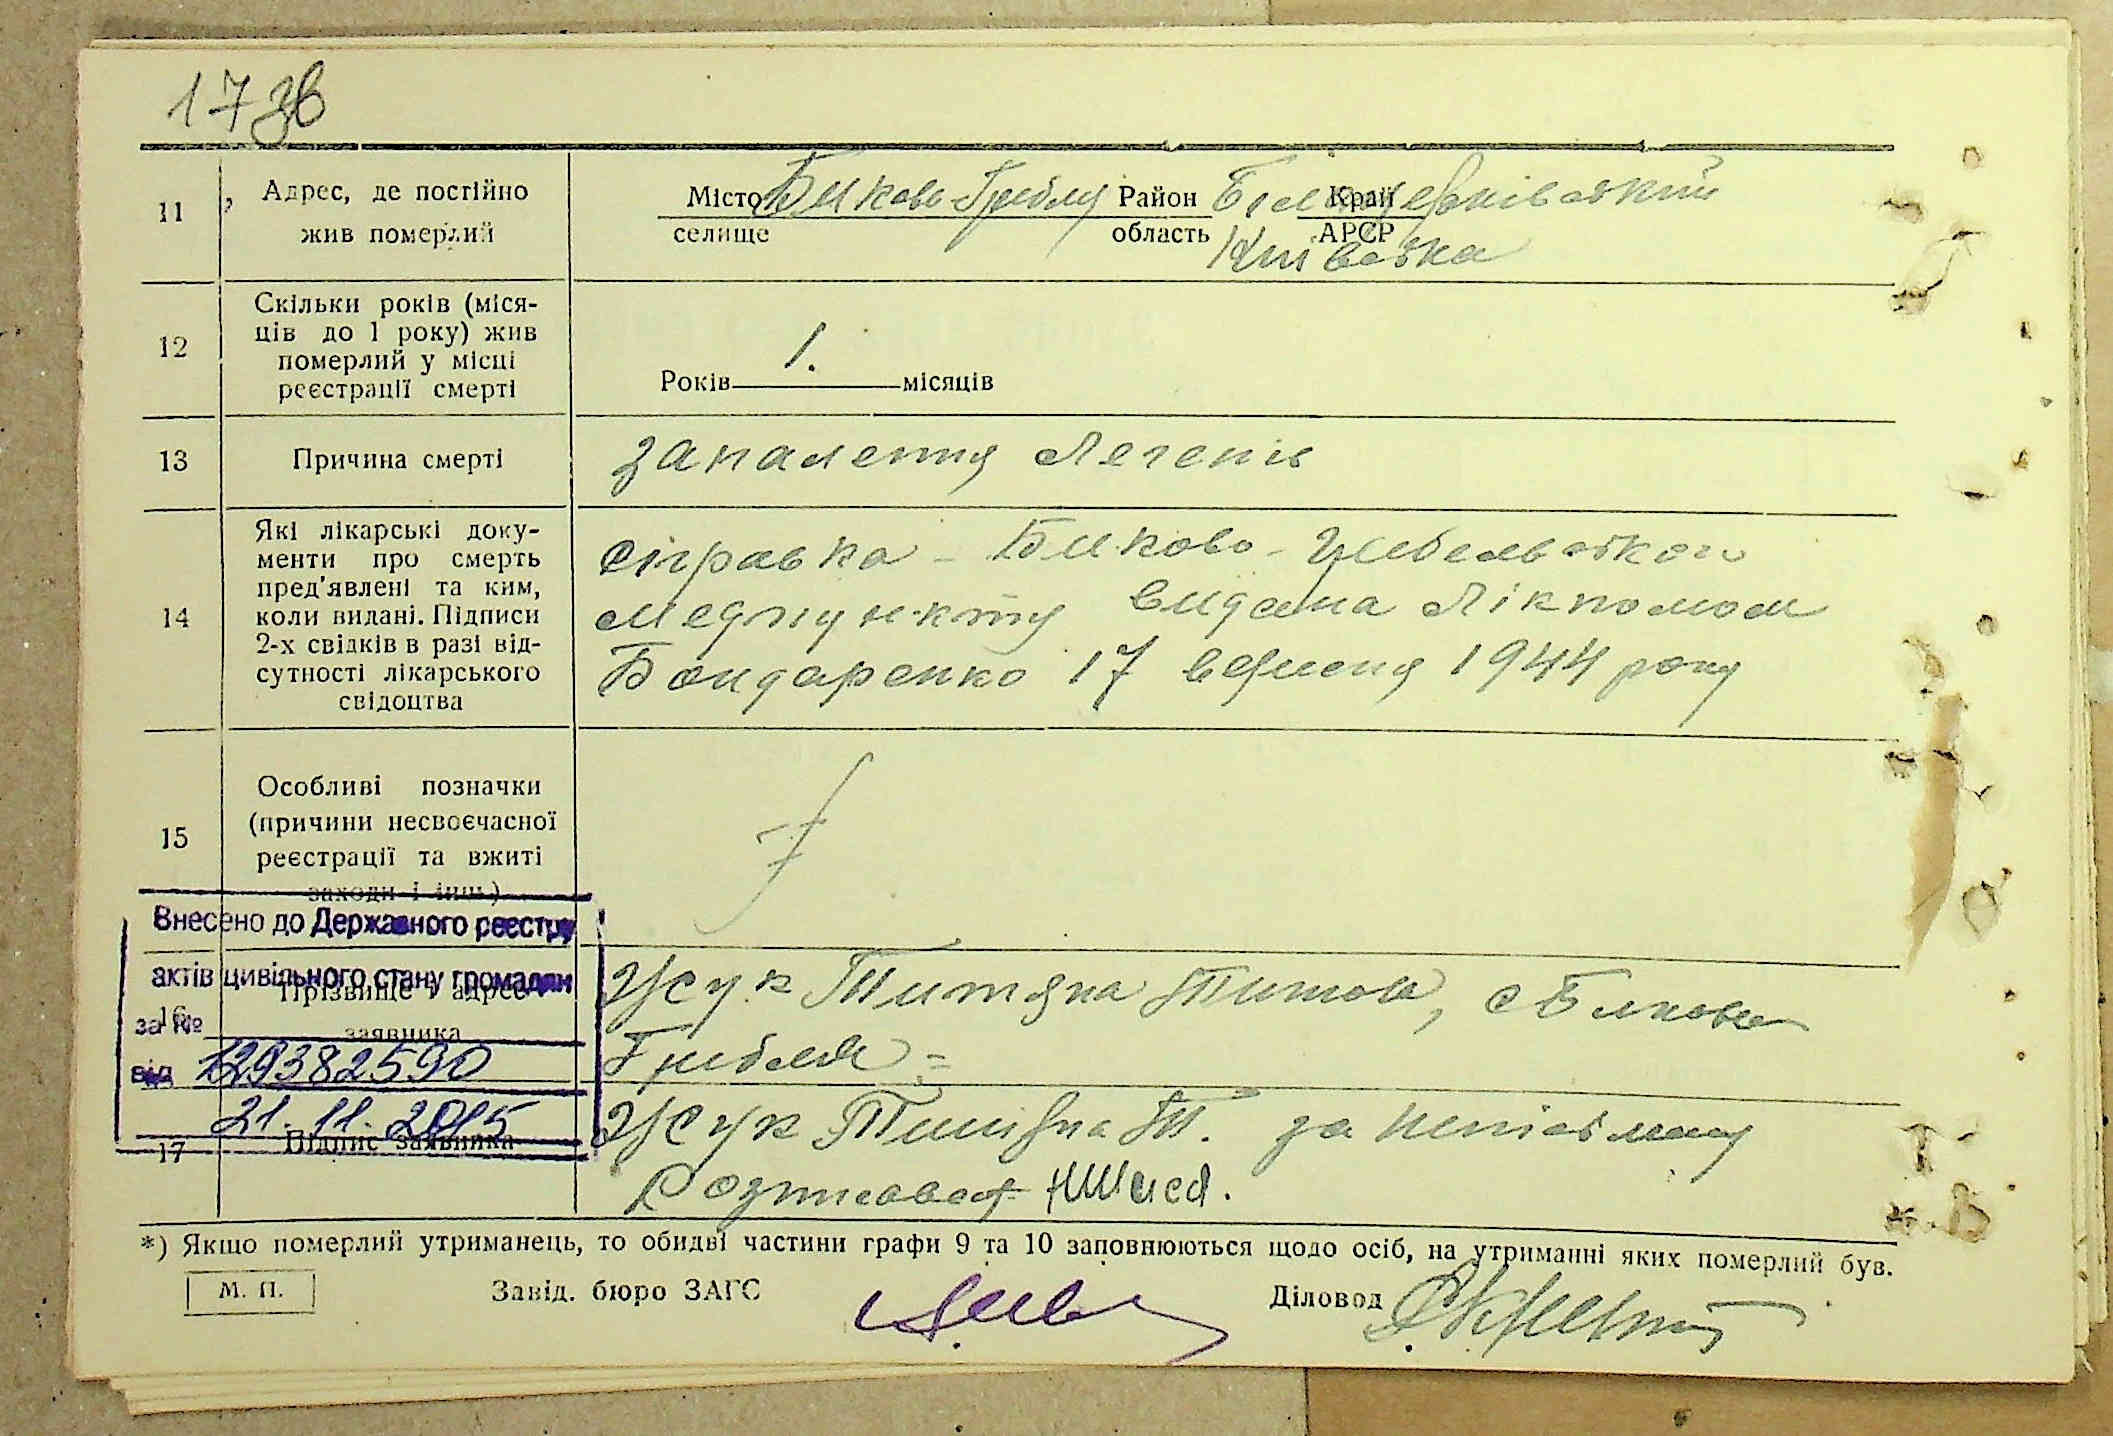 173в
11 Адрес, де постійно жив померлий
Місто Бикова-Гребля Район Білоцерківський Край
селище область Київська АРСР
12 Скільки років (міся-
ців до 1 року) жив
померлий у місці
реєстрації смерті
Років 1. місяців
13 Причина смерті запалення легенів
14 Які лікарські доку-
менти про смерть
пред'явлені та ким,
коли видані. Підписи
2-х свідків в разі від-
сутності лікарського
свідоцтва
справка - Биково-Гребельського
медпункту видана лікпомом
Бондаренко 17 вересня 1944 року
15 Особливі позначки
(причини несвоєчасної
реєстрації та вжиті
заходи і інш.)
Внесено до Державного реєстру
актів цивільного стану громадян
за №
від 129382590
21.11.2015
16 Прізвище і адреса
заявника
Усук Титяна Титова, с Бикова
Гребля =
17 Підпис заявника
Усук Т. за неписьмену
Розписався
*) Якщо померлий утриманець, то обидві частини графи 9 та 10 заповнюються щодо осіб, на утриманні яких померлий був.
М. П. Завід. бюро ЗАГС Діловод